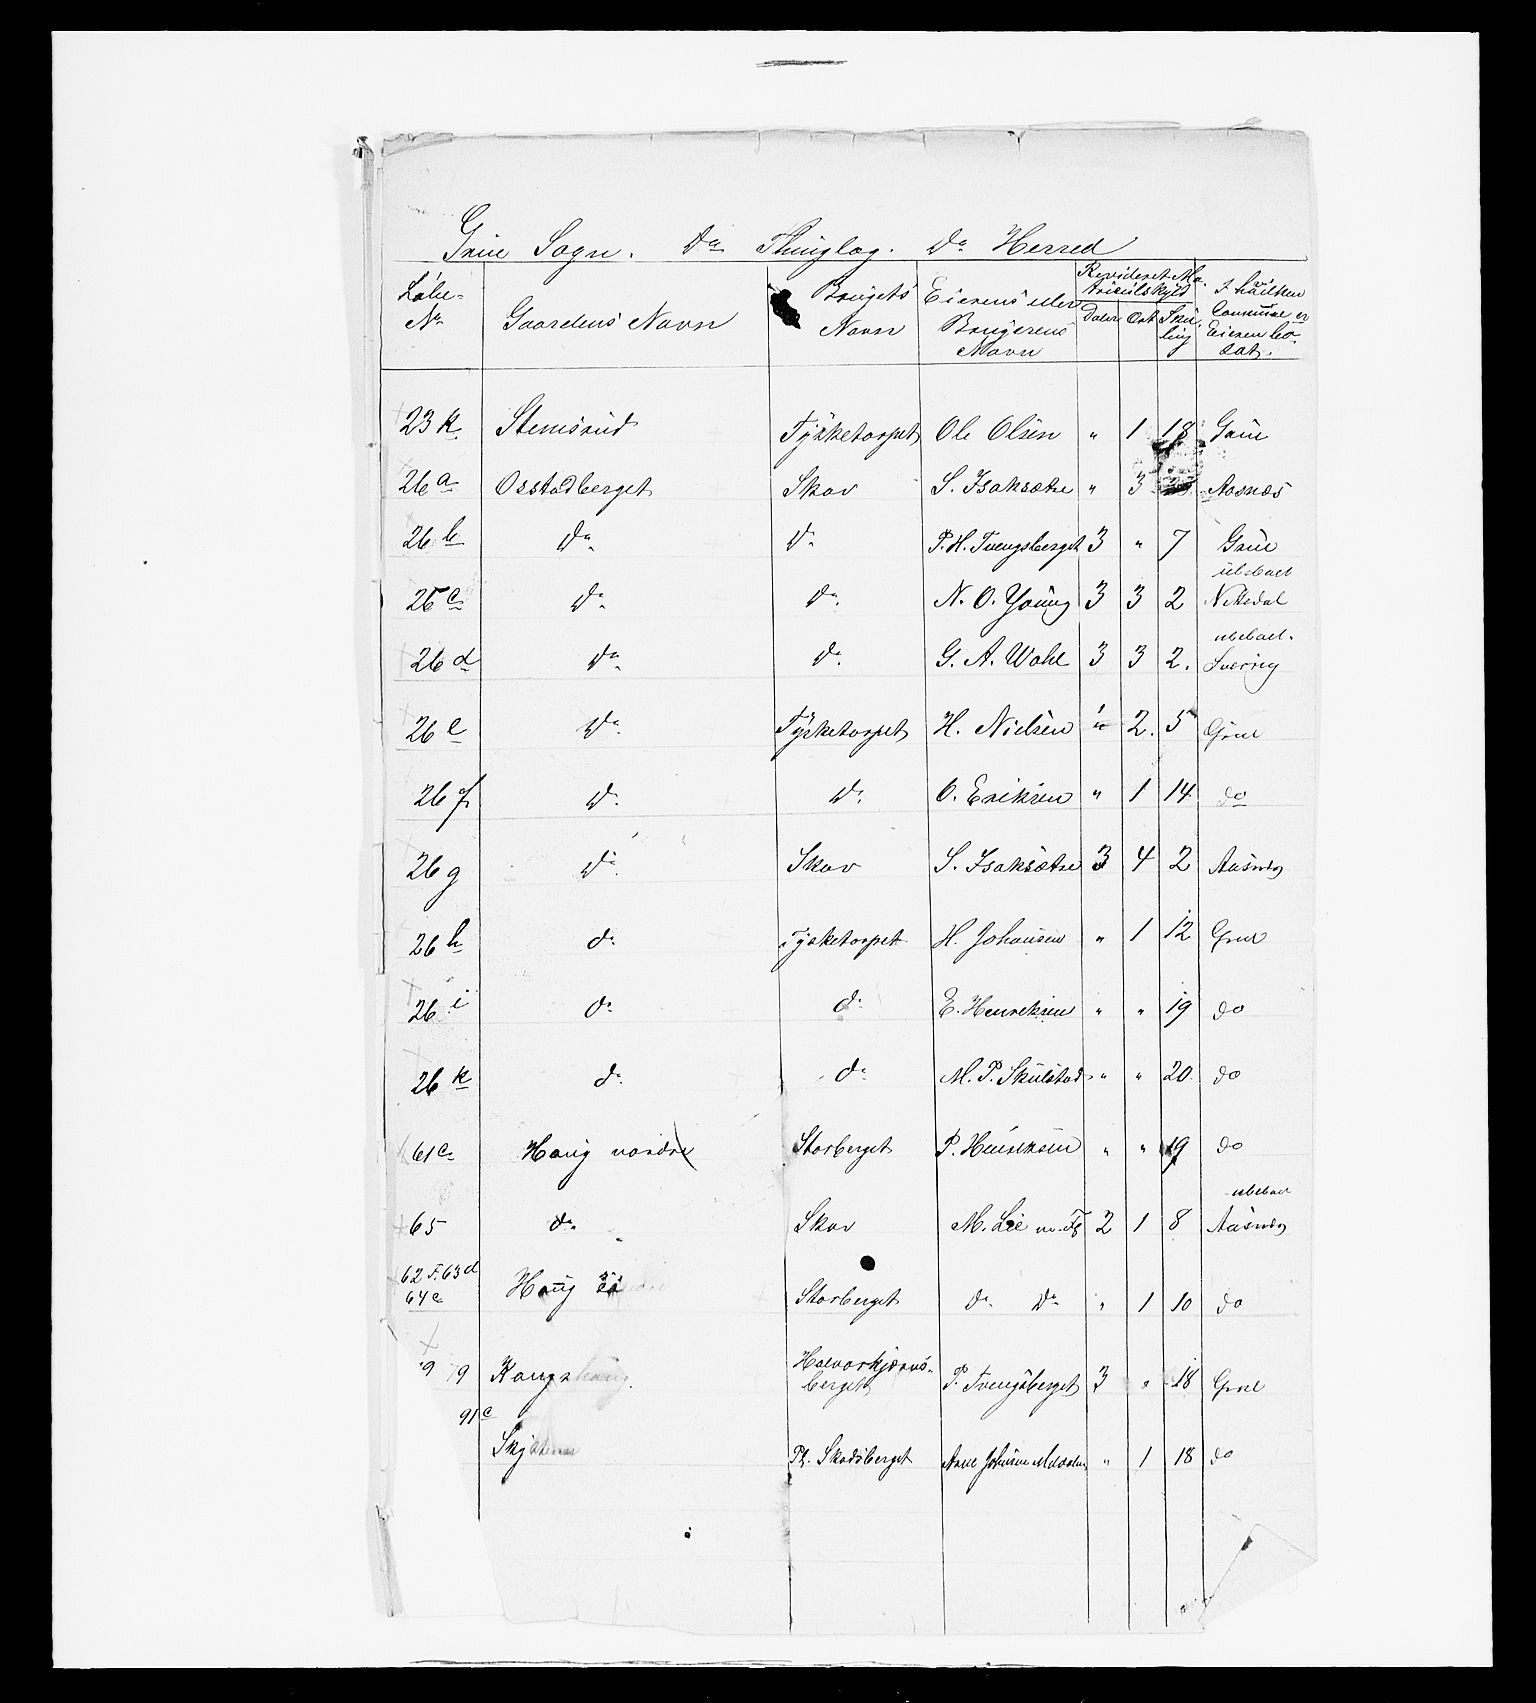 Grue Sogn. Do Thinglag. Do Herred
Löbe- No | Gaardens Navn | Brugets Navn | Eierens eller Brugerens Navn | Revideret Matriculskyld Daler Ort Skilling | I hvilken Commune er Eieren bosat.
23 k | Stemsrud | Tysketorpet | Ole Olsen | " | 1 | 18 | Grue
26 a | Osstadberget | Skov | S. Isaksætre | " | 3 | | Aasnæs
26 b | Do | Do | P. H. Tvengsberget | 3 | " | 7 | Grue
26 c | Do | Do | N. O. Young | 3 | 3 | 2 | ubeboet Nittedal
26 d | Do | Do | G. A. Wahl | 3 | 3 | 2. | ubeboet. Sverrig
26 e | Do | Tysketorpet | H. Nielsen | " | 2. | 5 | Grue
26 f | Do | Do | O. Eriksen | " | 1 | 14 | do
26 g | Do | Skov | S. Isaksætre | 3 | 4 | 2 | Aasnæs
26 h | do | Tysketorpet | H. Johansen | " | 1 | 12 | Grue
26 i | do | do | E. Henriksen | " | " | 19 | do
26 k | do | do | M. P. Skulstad | " | " | 20 | do
61 c | Haug nordre | Storberget | P. Henriksen | " | " | 19 | do
65 | do " | Skov | M. Lie m. Fl | 2 | 1 | 8 | ubeboet Aasnæs
62 f. 63 d 64 c | Haug | Storberget | do Do | " | 1 | 10 | do
79 | Kongshaug. | Halvorkjærns- berget | P. Tvengsberget | 3 | " | 18 | Grue
91 c | | Pl. Skadsberget | Arne Johnsen | " | 1 | 18 | do